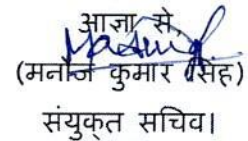 आज्ञा से,
(मनोज कुमार सिंह)
संयुक्त सचिव।